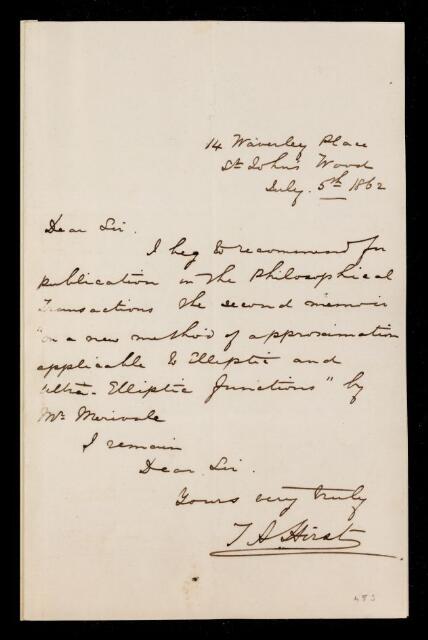 14 Waverley Place
St. John's Wood
July. 5th 1862
Dear Sir.
I beg to recommend for
publication in the Philosophical
Transactions the second memoir
"on a new method of approximation
applicable to Elliptic and
Ultra-Elliptic Functions" by
Mr.
I remain
Dear Sir.
Yours very truly
T A Hirst